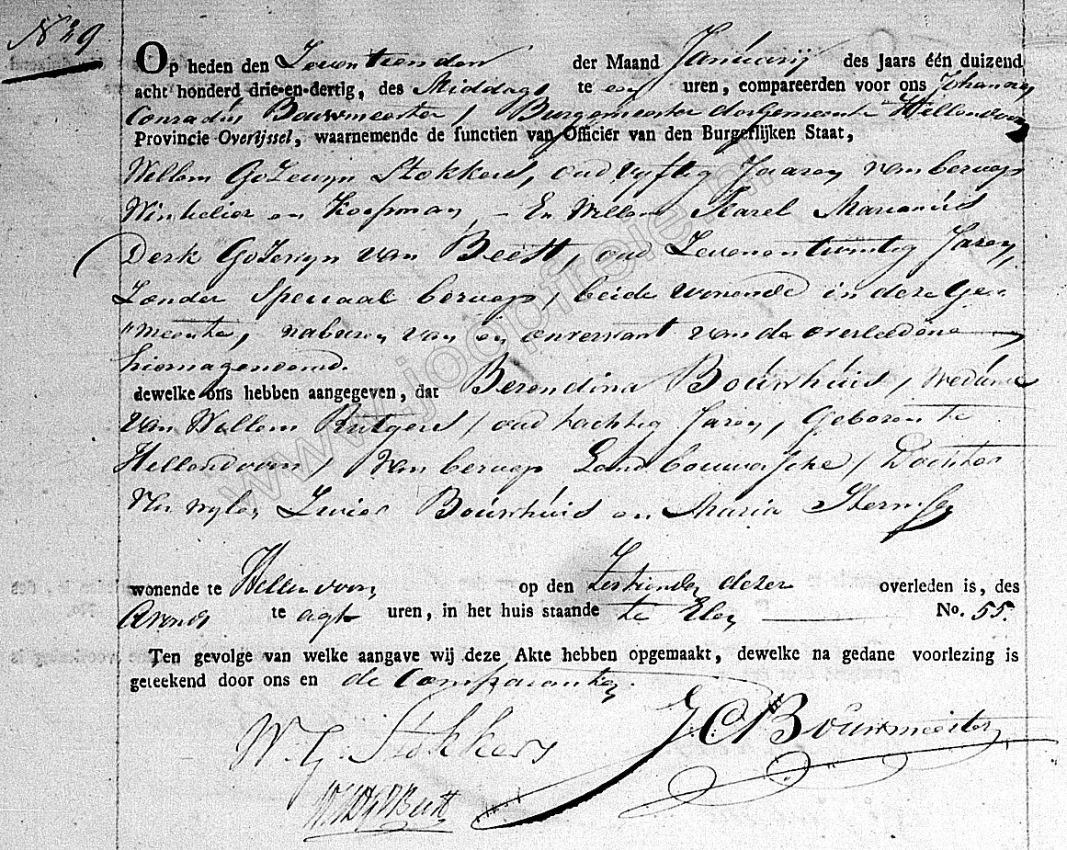 No 29
Op heden den Zeventienden der Maand Januarij des jaars één duizend
acht honderd drie-en-dertig, des Middags te een uren, compareerden voor ons Johannes
Conradus Bouwmeester, Burgemeester der gemeente Hellendoorn
Provincie Overijssel, waarnemende de functien van Officier van den Burgerlijken Staat,
Willem Gozewijn Stokkers, oud vyftig Jaaren van beroep
Winkelier en Koopman, - En Willem Karel Marianus
Derk Gozewijn van Beest, oud Zevenentwintig Jaren,
Zonder speciaal beroep, beide wonende in deze Ge-
meente, naburen van en onverwant van de overledene
hiernagenoemd.
dewelke ons hebben aangegeven, dat Berendina Bouwhuis, Weduwe
van Willem Rutgers, oud tachtig Jaren, Geboren te
Hellendoorn, van beroep Landbouwersche, Dochter
van wylen Zwier Bouwhuis en Maria
wonende te Hellendoorn op den Zestienden dezer overleden is, des
Avonds te agt uren, in het huis staande te Elen No. 55.
Ten gevolge van welke aangave wij deze Akte hebben opgemaakt, dewelke na gedane voorlezing is
geteekend door ons en de Comparanten.
W. G. Stokkers J. C. Bouwmeester
www.joopfrele.nl